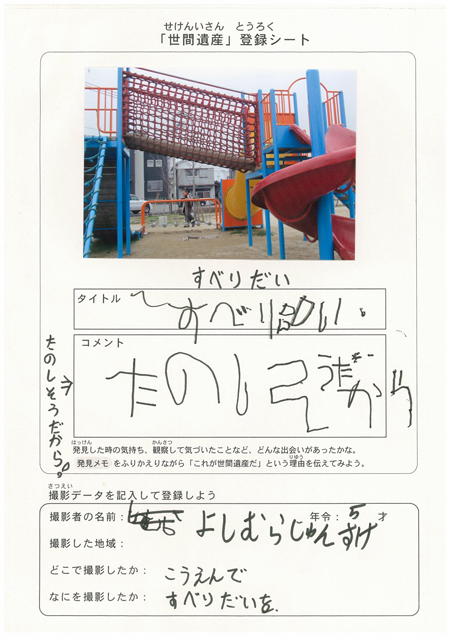 せけんいさん とうろく
「世間遺産」登録シート
すべりだい
タイトル
すべりだい。
コメント
たのしそうだから
たのしそうだから。
はっけん かんさつ
発見した時の気持ち、観察して気づいたことなど、どんな出会いがあったかな。
りゆう
発見メモ をふりかえりながら「これが世間遺産だ」という理由を伝えてみよう。
さつえい
撮影データを記入して登録しよう
撮影者の名前: よしむらじゅんすけ 年令: 5 才
撮影した地域:
どこで撮影したか: こうえんで
なにを撮影したか: すべりだいを.